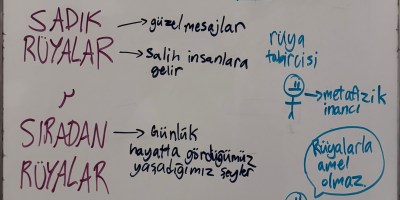 SADIK
RÜYALAR
güzel mesajlar
Salih insanlara
gelir
SIRADAN
RÜYALAR
Günlük
hayatta gördüğümüz
yaşadığımız şeyler
rüya
tabircisi
metafizik
inancı
Rüyalarla
amel
olmaz.